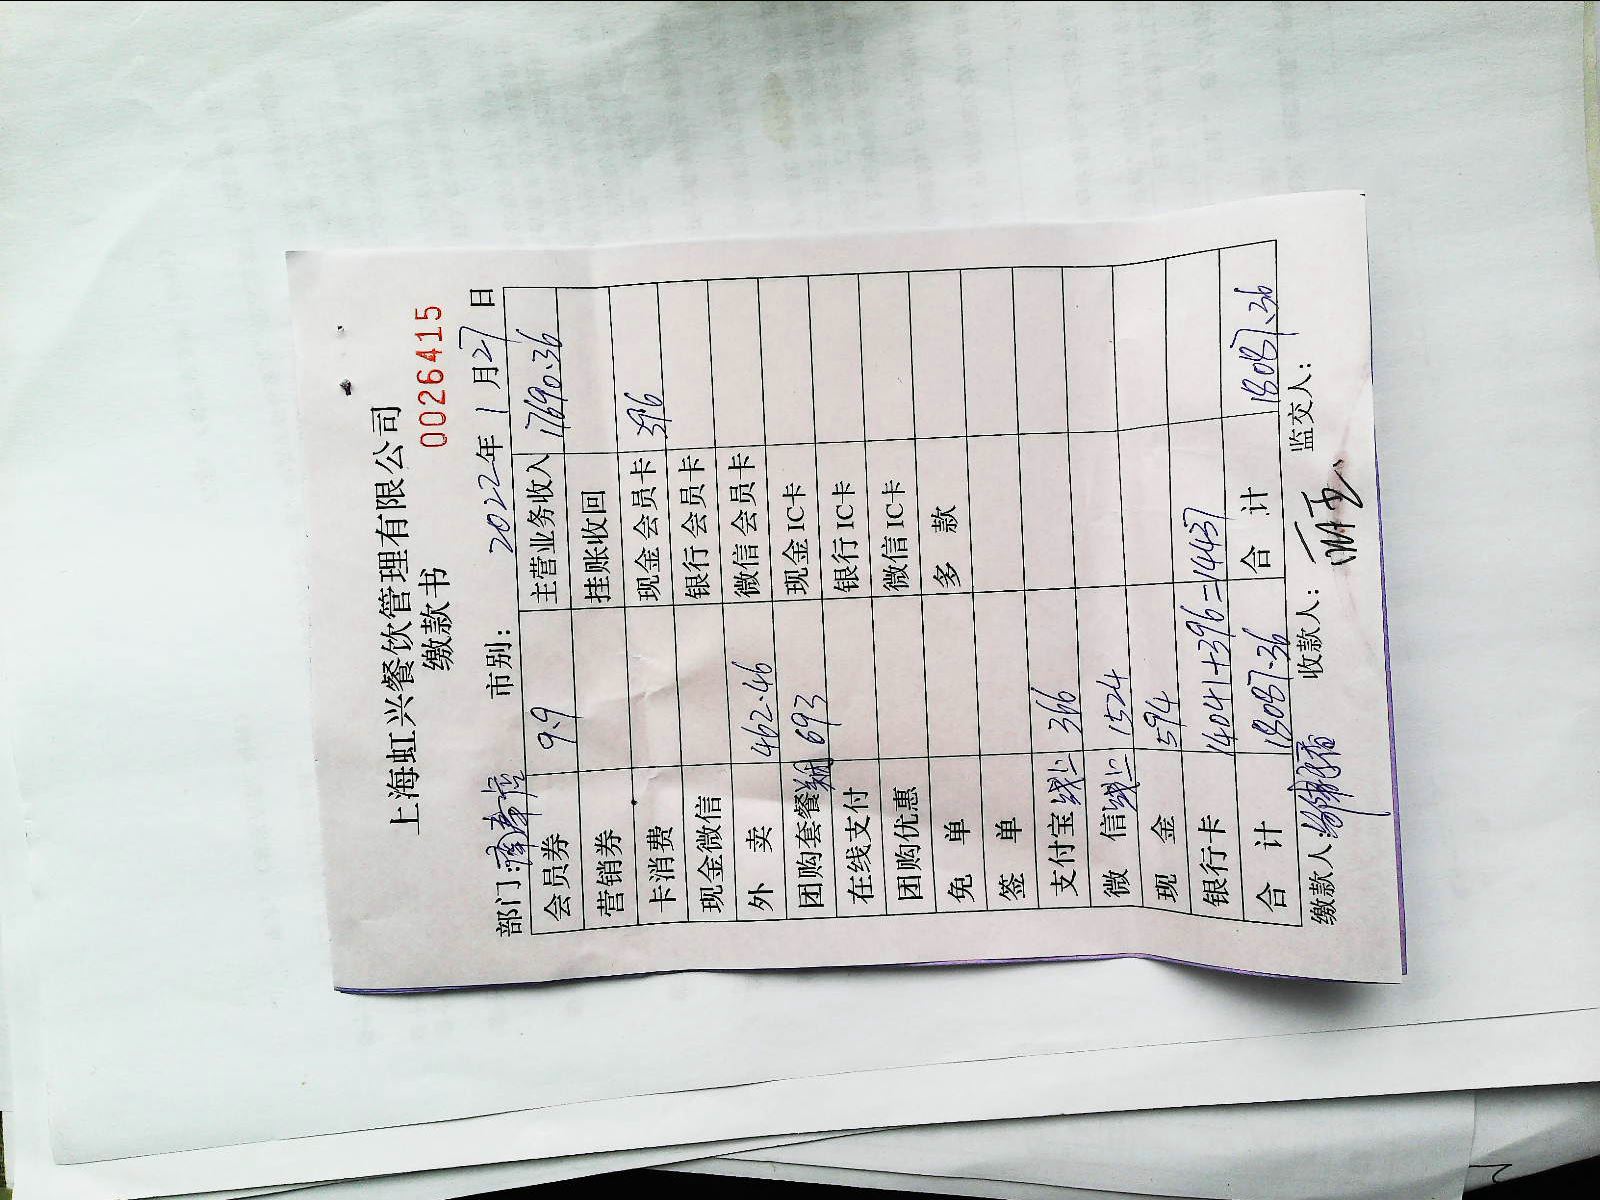 上海虹兴餐饮管理有限公司
缴款书
0026415
部门: 市别: 2022年 1月27日
会员券 9.9 主营业务收入 17690.36
营销券 挂账收回
卡消费 现金会员卡 396
现金微信 银行会员卡
外卖 462.46 微信会员卡
团购套餐 693 现金IC卡
在线支付 银行IC卡
团购优惠 微信IC卡
免单 多款
签单
支付宝线上 366
微信线上 1524
现金 594
银行卡 14041+396=14437
合计 18087.36 合计 18087.36
缴款人: 收款人: 监交人: